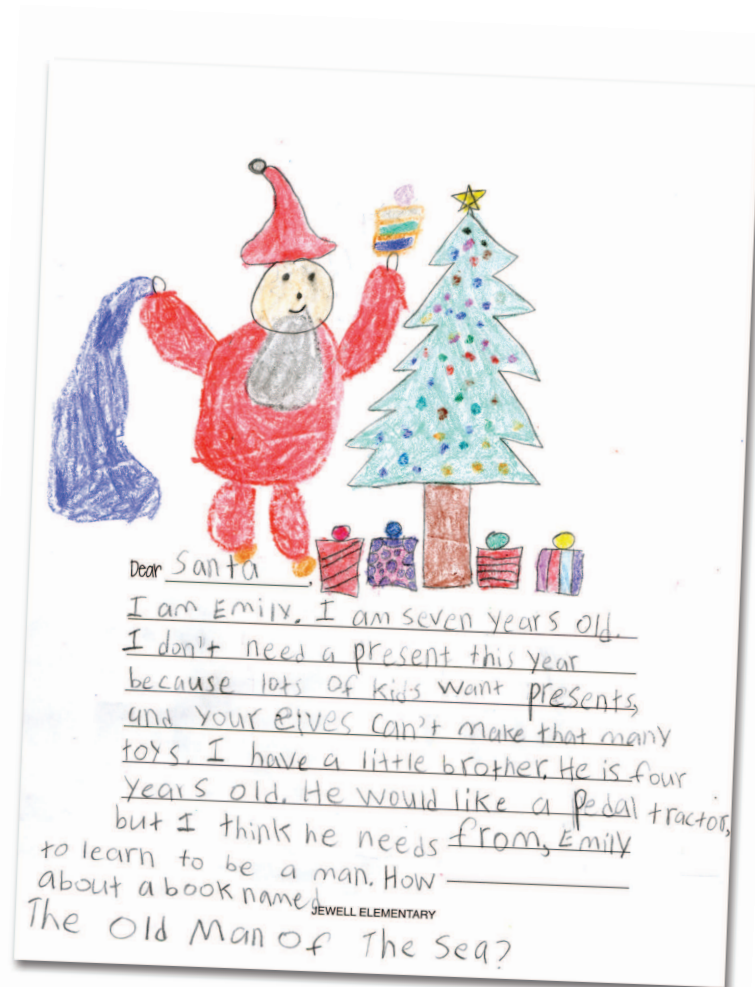 Dear Santa,
I am Emily. I am seven years old.
I don't need a present this year
because lots of kids want presents,
and your elves can't make that many
toys. I have a little brother. He is four
years old. He would like a pedal tractor,
but I think he needs
from, Emily
to learn to be a man. How
about a book named
JEWELL ELEMENTARY
The Old Man Of The Sea?